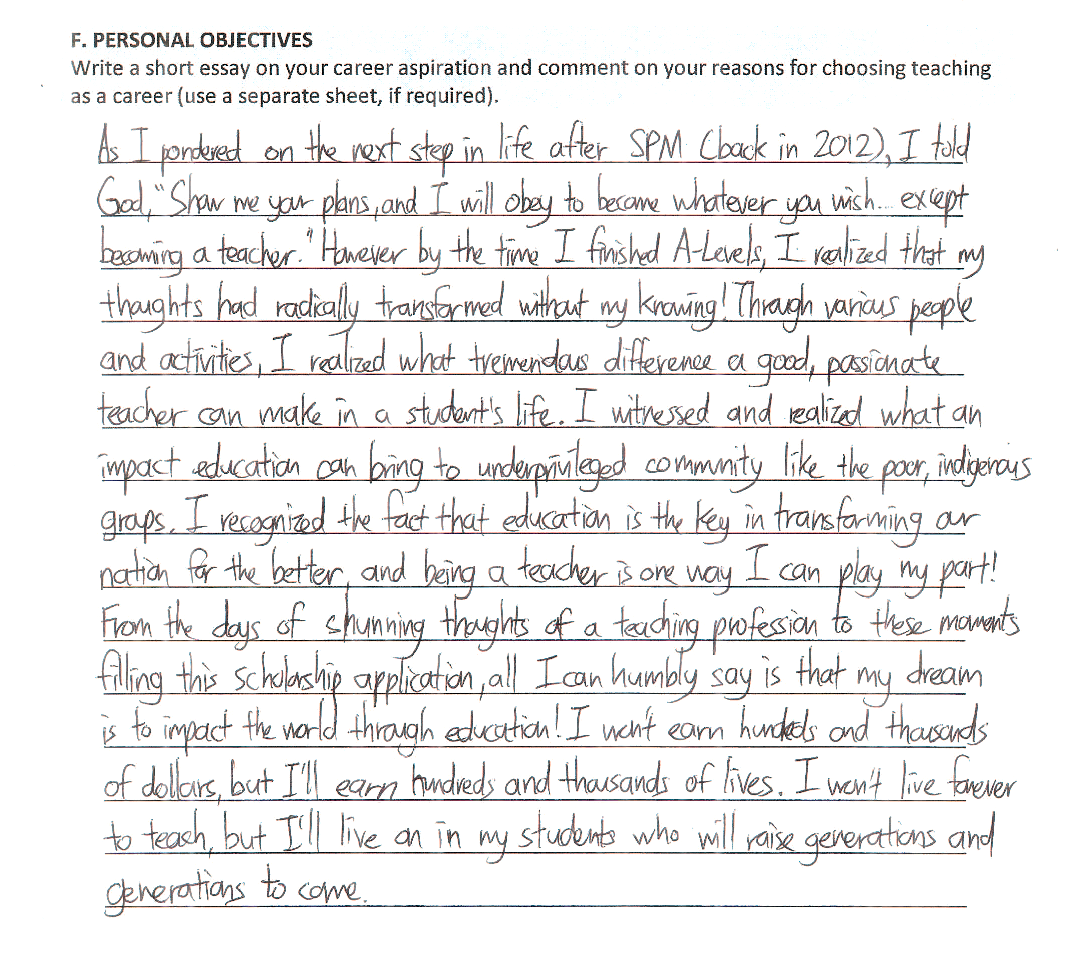 F. PERSONAL OBJECTIVES
Write a short essay on your career aspiration and comment on your reasons for choosing teaching
as a career (use a separate sheet, if required).
As I pondered on the next step in life after SPM (back in 2012), I told
God, "Show me your plans, and I will obey to become whatever you wish... except
becoming a teacher." However by the time I finished A-Levels, I realized that my
thoughts had radically transformed without my knowing! Through various people
and activities, I realized what tremendous difference a good, passionate
teacher can make in a student's life. I witnessed and realized what an
impact education can bring to underprivileged community like the poor, indigenous
groups. I recognized the fact that education is the key in transforming our
nation for the better, and being a teacher is one way I can play my part!
From the days of shunning thoughts of a teaching profession to these moments
filling this scholarship application, all I can humbly say is that my dream
is to impact the world through education! I won't earn hundreds and thousands
of dollars, but I'll earn hundreds and thousands of lives. I won't live forever
to teach, but I'll live on in my students who will raise generations and
generations to come.